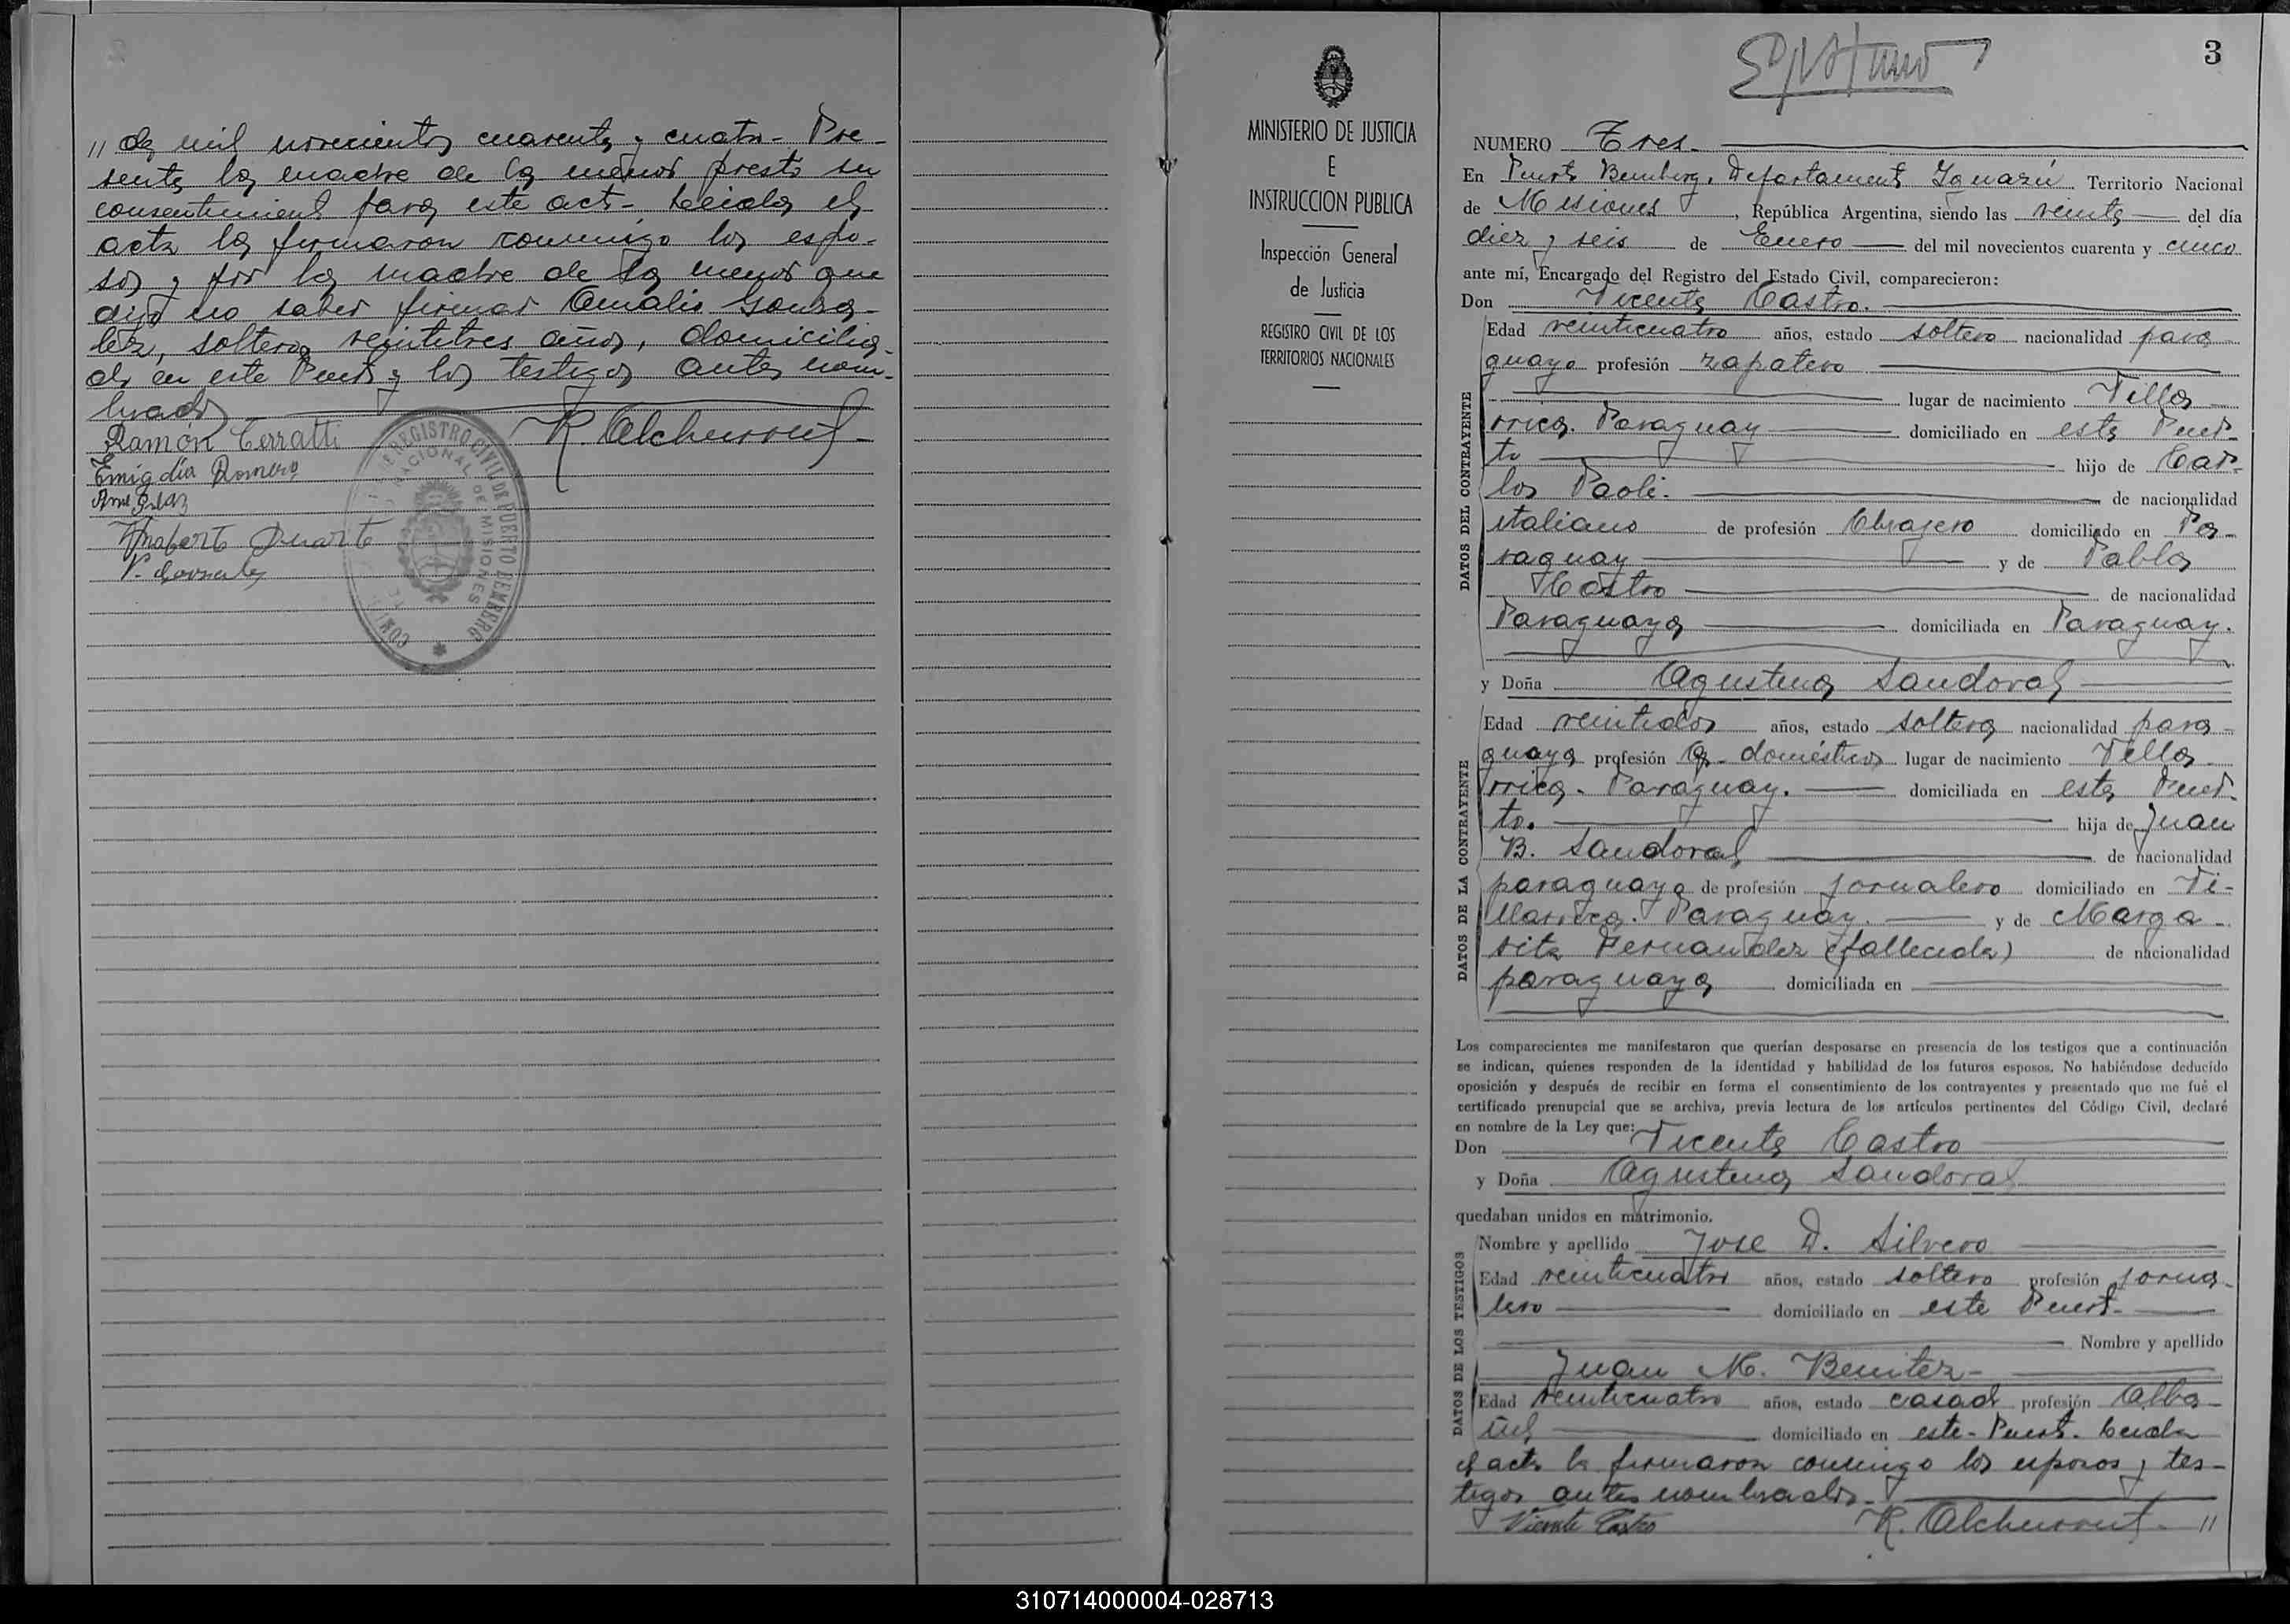 // de mil novecientos cuarenta y cuatro - Pre-
sente la madre de la menor presto su
consentimiento para este acto - Leida el
acta la firmaron conmigo los espo-
sos y por la madre de la menor que
dijo no saber firmar Amalia Gonza-
lez, soltera, veintitres años, domicilia-
da en este Puerto y los testigos antes nom-
brados
Ramón Cerratti
R. Alchurrut
Emigdia Romero
Duarte
REGISTRO CIVIL DE PUERTO BEMBERG
NACIONAL DE MISIONES
3
MINISTERIO DE JUSTICIA
E
INSTRUCCION PUBLICA
Inspección General
de Justicia
REGISTRO CIVIL DE LOS
TERRITORIOS NACIONALES
NUMERO Tres.
En Puerto Bemberg, Departamento Iguazú Territorio Nacional
de Misiones, República Argentina, siendo las veinte del día
diez y seis de Enero del mil novecientos cuarenta y cinco
ante mí, Encargado del Registro del Estado Civil, comparecieron:
Don Vicente Castro.
DATOS DEL CONTRAYENTE
Edad veinticuatro años, estado soltero nacionalidad para-
guayo profesión zapatero
lugar de nacimiento Villa-
rrica. Paraguay domiciliado en este Puer-
to hijo de Car-
los Paoli. de nacionalidad
italiano de profesión Obrajero domiciliado en Pa-
raguay y de Pabla
Castro de nacionalidad
Paraguaya domiciliada en Paraguay.
y Doña Agustina Sandoval
DATOS DE LA CONTRAYENTE
Edad veintidos años, estado soltera nacionalidad para-
guaya profesión Q. domésticos lugar de nacimiento Villa-
rrica. Paraguay. domiciliada en este Puer-
to. hija de Juan
B. Sandoval de nacionalidad
paraguayo de profesión jornalero domiciliado en Vi-
llarrica. Paraguay. y de Marga-
rita Fernandez (fallecida) de nacionalidad
paraguaya domiciliada en
Los comparecientes me manifestaron que querían desposarse en presencia de los testigos que a continuación
se indican, quienes responden de la identidad y habilidad de los futuros esposos. No habiéndose deducido
oposición y después de recibir en forma el consentimiento de los contrayentes y presentado que me fué el
certificado prenupcial que se archiva, previa lectura de los artículos pertinentes del Código Civil, declaré
en nombre de la Ley que:
Don Vicente Castro
y Doña Agustina Sandoval
quedaban unidos en matrimonio.
DATOS DE LOS TESTIGOS
Nombre y apellido Jose D. Silvero
Edad veinticuatro años, estado soltero profesión jorna-
lero domiciliado en este Puerto.
Nombre y apellido
Juan M. Benitez
Edad veinticuatro años, estado casado profesión Alba-
ñil domiciliado en este Puerto. Leida
el acta la firmaron conmigo los esposos y tes-
tigos antes nombrados.
Vicente Castro R. Alchurrut //
310714000004-028713